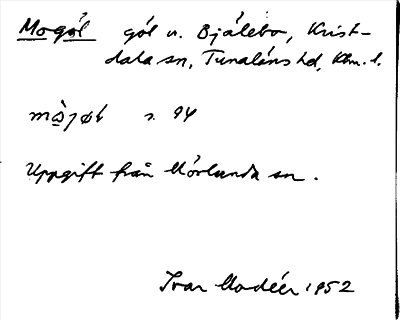 Mogöl göl n. Bjälebo, Krist-
dala sn, Tunaläns hd, Klm. l.
s. 94
Uppgift från Mörlunda sn.
Ivar Modéer 1952